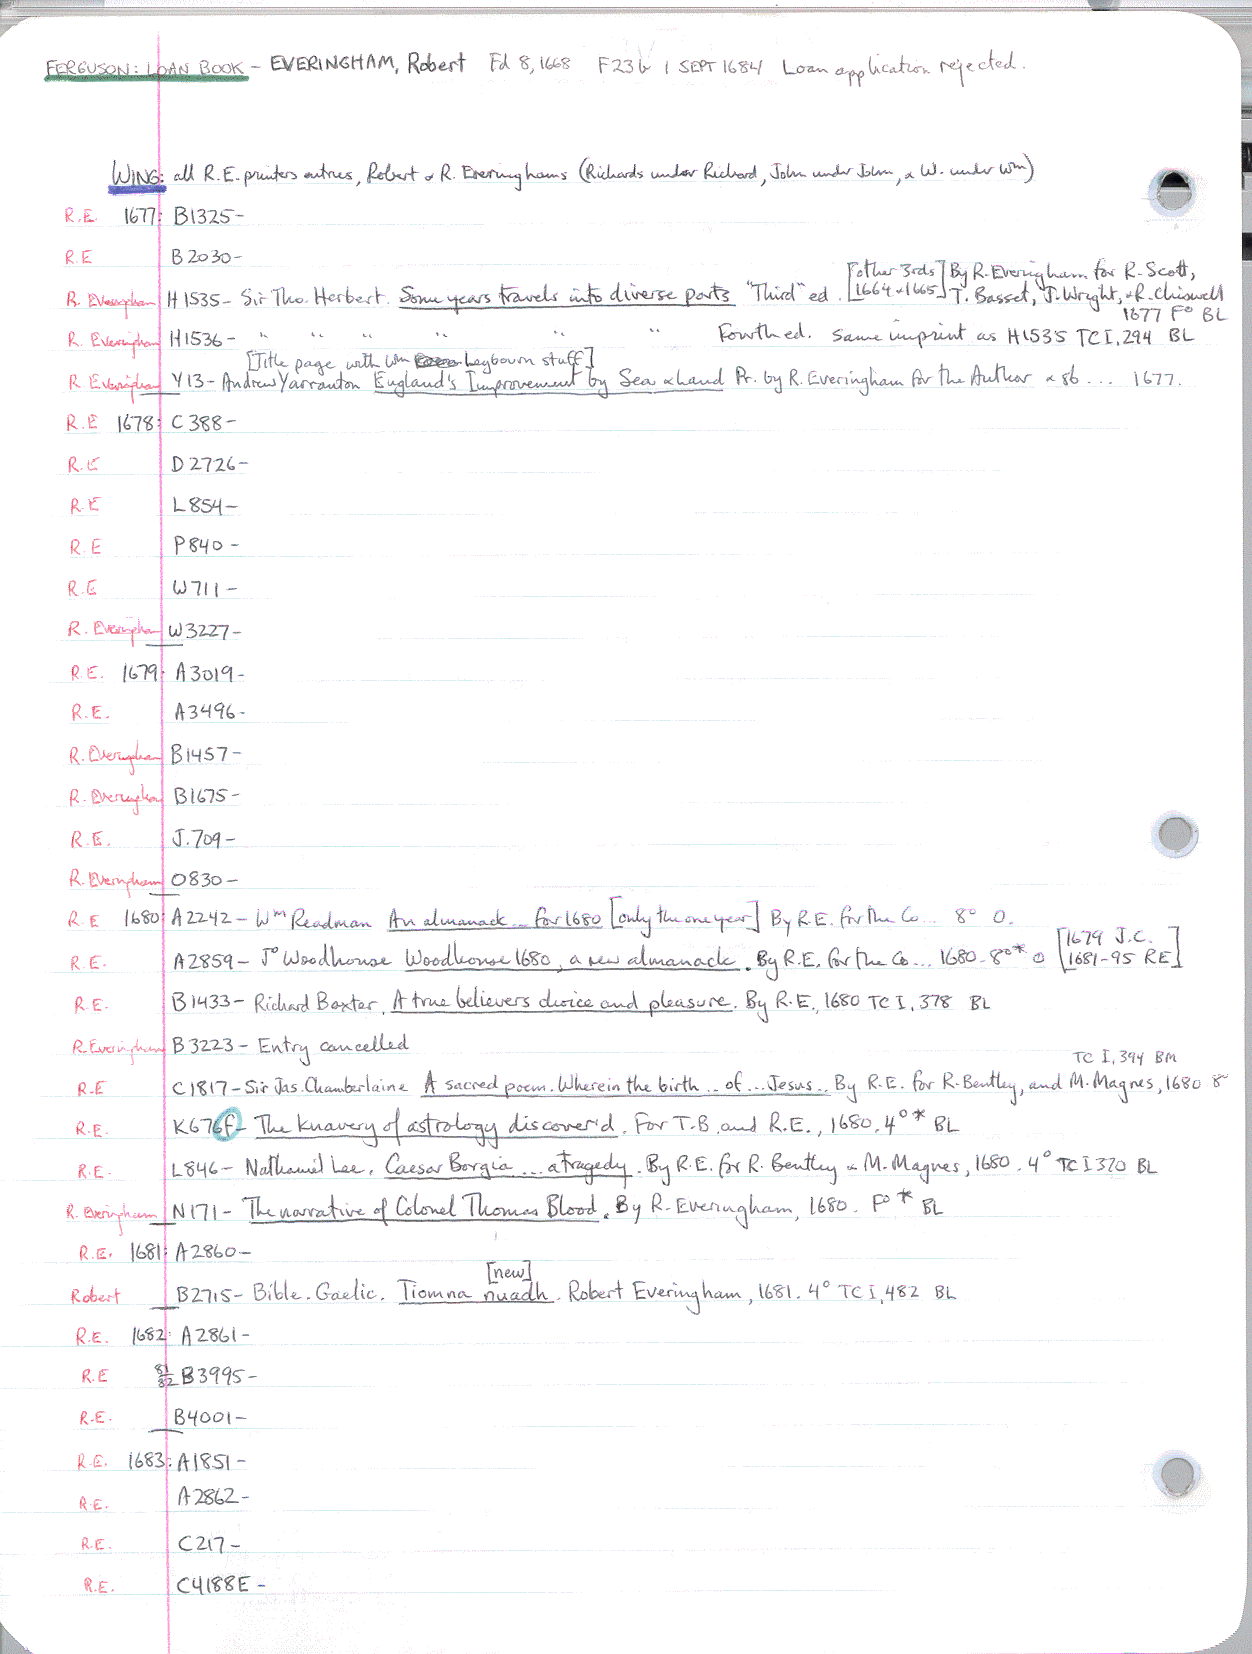 FERGUSON: LOAN BOOK - EVERINGHAM, Robert Fd 8, 1668 F23b 1 SEPT 1684 Loan application rejected.
WING: all R.E. printers entries, Robert & R. Everinghams (Richards under Richard, John under John, & W. under Wm)
R.E. 1677: B1325-
R.E B2030-
[other 3rds] By R. Everingham for R. Scott,
R. Everingham H1535- Sir Tho. Herbert. Some years travels into diverse parts "Third" ed. [1664 & 1665] T. Basset, J. Wright, & R. Chiswell
1677 Fº BL
R. Everingham H1536- " " " " " " Fourth ed. Same imprint as H1535 TC I, 294 BL
[Title page with Wm Leybourn stuff]
R Everingham Y13- Andrew Yarranton England's Improvement by Sea & hand Pr. by R. Everingham for the Author & sb ... 1677.
R.E 1678: C388-
R.E D2726-
R.E L854-
R.E P840-
R.E W711-
R. Everingham W3227-
R.E. 1679: A3019-
R.E. A3496-
R. Everingham B1457-
R. Everingham B1675-
R.E. J.709-
R. Everingham O830-
R.E 1680: A2242- Wm Readman An almanack ... for 1680 [only the one year] By R.E. for the Co... 8º O.
[1679 J.C.
R.E. A2859- Jº Woodhouse Woodhouse 1680, a new almanack. By R.E. for the Co... 1680 8º* O 1681-95 RE]
R.E. B1433- Richard Baxter. A true believers choice and pleasure. By R.E., 1680 TC I, 378 BL
R. Everingham B3223- Entry cancelled
TC I, 394 BM
R.E C1817- Sir Jas. Chamberlaine A sacred poem. Wherein the birth .. of ... Jesus.. By R.E. for R. Bentley, and M. Magnes, 1680 8º
R.E. K676f- The knavery of astrology discover'd. For T.B. and R.E., 1680. 4º* BL
R.E. L846- Nathaniel Lee. Caesar Borgia ... a tragedy. By R.E. for R. Bentley & M. Magnes, 1680. 4º TC I 370 BL
R. Everingham N171- The narrative of Colonel Thomas Blood. By R. Everingham, 1680. Fº* BL
R.E. 1681: A2860-
[new]
Robert B2715- Bible. Gaelic. Tiomna nuadh. Robert Everingham, 1681. 4º TC I, 482 BL
R.E. 1682: A2861-
R.E 81/82 B3995-
R.E. B4001-
R.E. 1683: A1851-
R.E. A2862-
R.E. C217-
R.E. C4188E-